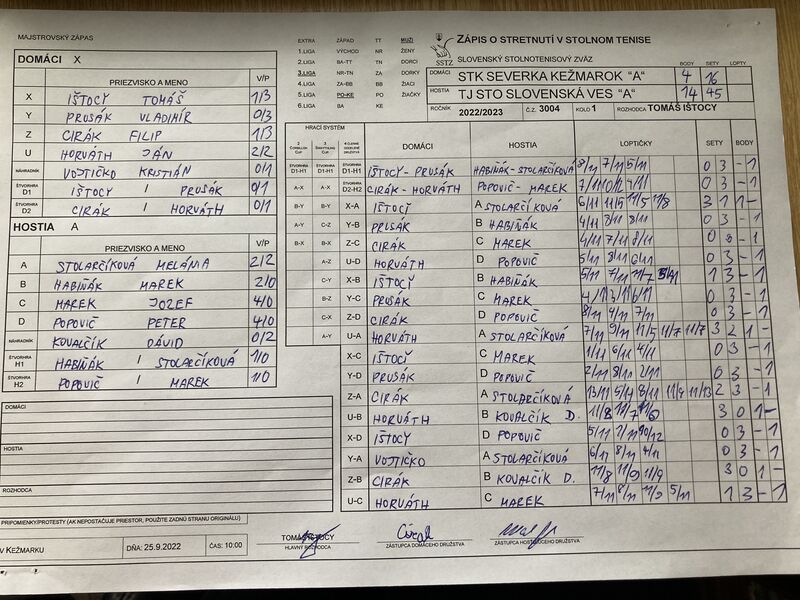 MAJSTROVSKÝ ZÁPAS
DOMÁCI X
PRIEZVISKO A MENO V/P
X IŠTOCY TOMÁŠ 1/3
Y PRUSÁK VLADIMÍR 0/3
Z CIRÁK FILIP 1/3
U HORVÁTH JÁN 2/2
NÁHRADNÍK VOJTIČKO KRISTIÁN 0/1
ŠTVORHRA D1 IŠTOCY / PRUSÁK 0/1
ŠTVORHRA D2 CIRÁK / HORVÁTH 0/1
HOSTIA A
PRIEZVISKO A MENO V/P
A STOLARČÍKOVÁ MELÁNIA 2/2
B HABIŇÁK MAREK 2/0
C MAREK JOZEF 4/0
D POPOVIČ PETER 4/0
NÁHRADNÍK KOVALČÍK DÁVID 0/2
ŠTVORHRA H1 HABIŇÁK / STOLARČÍKOVÁ 1/0
ŠTVORHRA H2 POPOVIČ / MAREK 1/0
DOMÁCI
HOSTIA
ROZHODCA
PRIPOMIENKY/PROTESTY (AK NEPOSTAČUJE PRIESTOR, POUŽITE ZADNÚ STRANU ORIGINÁLU)
V KEŽMARKU DŇA: 25.9.2022 ČAS: 10:00
EXTRA ZÁPAD TT MUŽI
1.LIGA VÝCHOD NR ŽENY
2.LIGA BA-TT TN DORCI
3.LIGA NR-TN ZA DORKY
4.LIGA ZA-BB BB ŽIACI
5.LIGA PO-KE PO ŽIAČKY
6.LIGA BA KE
SSTZ
ZÁPIS O STRETNUTÍ V STOLNOM TENISE
SLOVENSKÝ STOLNOTENISOVÝ ZVÄZ
BODY SETY LOPTY
DOMÁCI STK SEVERKA KEŽMAROK "A" 4 16
HOSTIA TJ STO SLOVENSKÁ VES "A" 14 45
ROČNÍK 2022/2023 Č.Z. 3004 KOLO 1 ROZHODCA TOMÁŠ IŠTOCY
HRACÍ SYSTÉM DOMÁCI HOSTIA LOPTIČKY SETY BODY
ŠTVORHRA D1-H1 ŠTVORHRA D1-H1 ŠTVORHRA D1-H1 IŠTOCY - PRUSÁK HABIŇÁK - STOLARČÍKOVÁ 8/11 7/11 5/11 0 3 - 1
A-X A-X ŠTVORHRA D2-H2 CIRÁK - HORVÁTH POPOVIČ - MAREK 0 3 - 1
B-Y B-Y X-A IŠTOCY A STOLARČÍKOVÁ 3 1 1 -
A-Y C-Z Y-B PRUSÁK B HABIŇÁK 4/11 3/11 8/11 0 3 - 1
B-X B-X Z-C CIRÁK C MAREK 4/11 7/11 8/11 0 3 - 1
A-Z U-D HORVÁTH D POPOVIČ 5/11 8/11 6/11 0 3 - 1
C-Y X-B IŠTOCY B HABIŇÁK 1 3 - 1
B-Z Y-C PRUSÁK C MAREK 0 3 - 1
C-X Z-D CIRÁK D POPOVIČ 8/11 4/11 7/11 0 3 - 1
A-Y U-A HORVÁTH A STOLARČÍKOVÁ 7/11 9/11 11/5 11/7 11/7 3 2 1 -
X-C IŠTOCY C MAREK 1/11 6/11 4/11 0 3 - 1
Y-D PRUSÁK D POPOVIČ 2/11 8/11 2/11 0 3 - 1
Z-A CIRÁK A STOLARČÍKOVÁ 13/11 5/11 8/11 11/9 11/13 2 3 - 1
U-B HORVÁTH B KOVALČÍK D. 11/8 11/7 11/6 3 0 1 -
X-D IŠTOCY D POPOVIČ 5/11 7/11 10/12 0 3 - 1
Y-A VOJTIČKO A STOLARČÍKOVÁ 6/11 8/11 4/11 0 3 - 1
Z-B CIRÁK B KOVALČÍK D. 11/8 11/9 11/9 3 0 1 -
U-C HORVÁTH C MAREK 7/11 8/11 11/9 5/11 1 3 - 1
TOMÁŠ IŠTOCY
HLAVNÝ ROZHODCA
ZÁSTUPCA DOMÁCEHO DRUŽSTVA
ZÁSTUPCA HOSŤUJÚCEHO DRUŽSTVA